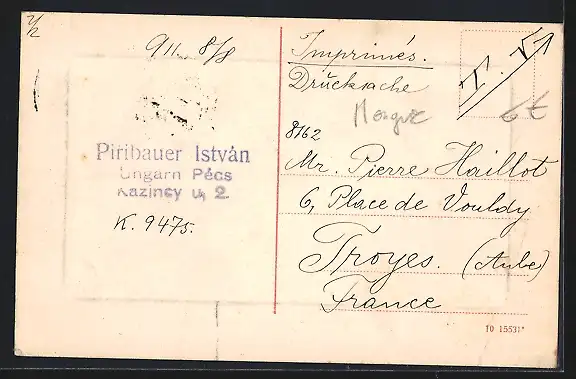 911. 8/8
Piribauer István
Ungarn Pécs
Kazinçy u, 2
K. 9475.
Imprimés.
Drucksache
T. V.
8162
Mr. Pierre Haillot
6, Place de Vouldy
Troyes. (Aube)
France
TO 15531*